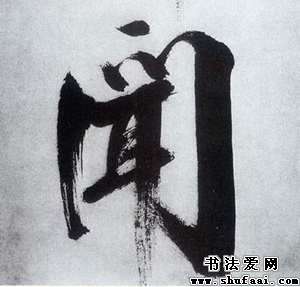 闻
书法爱网
www.shufaai.com